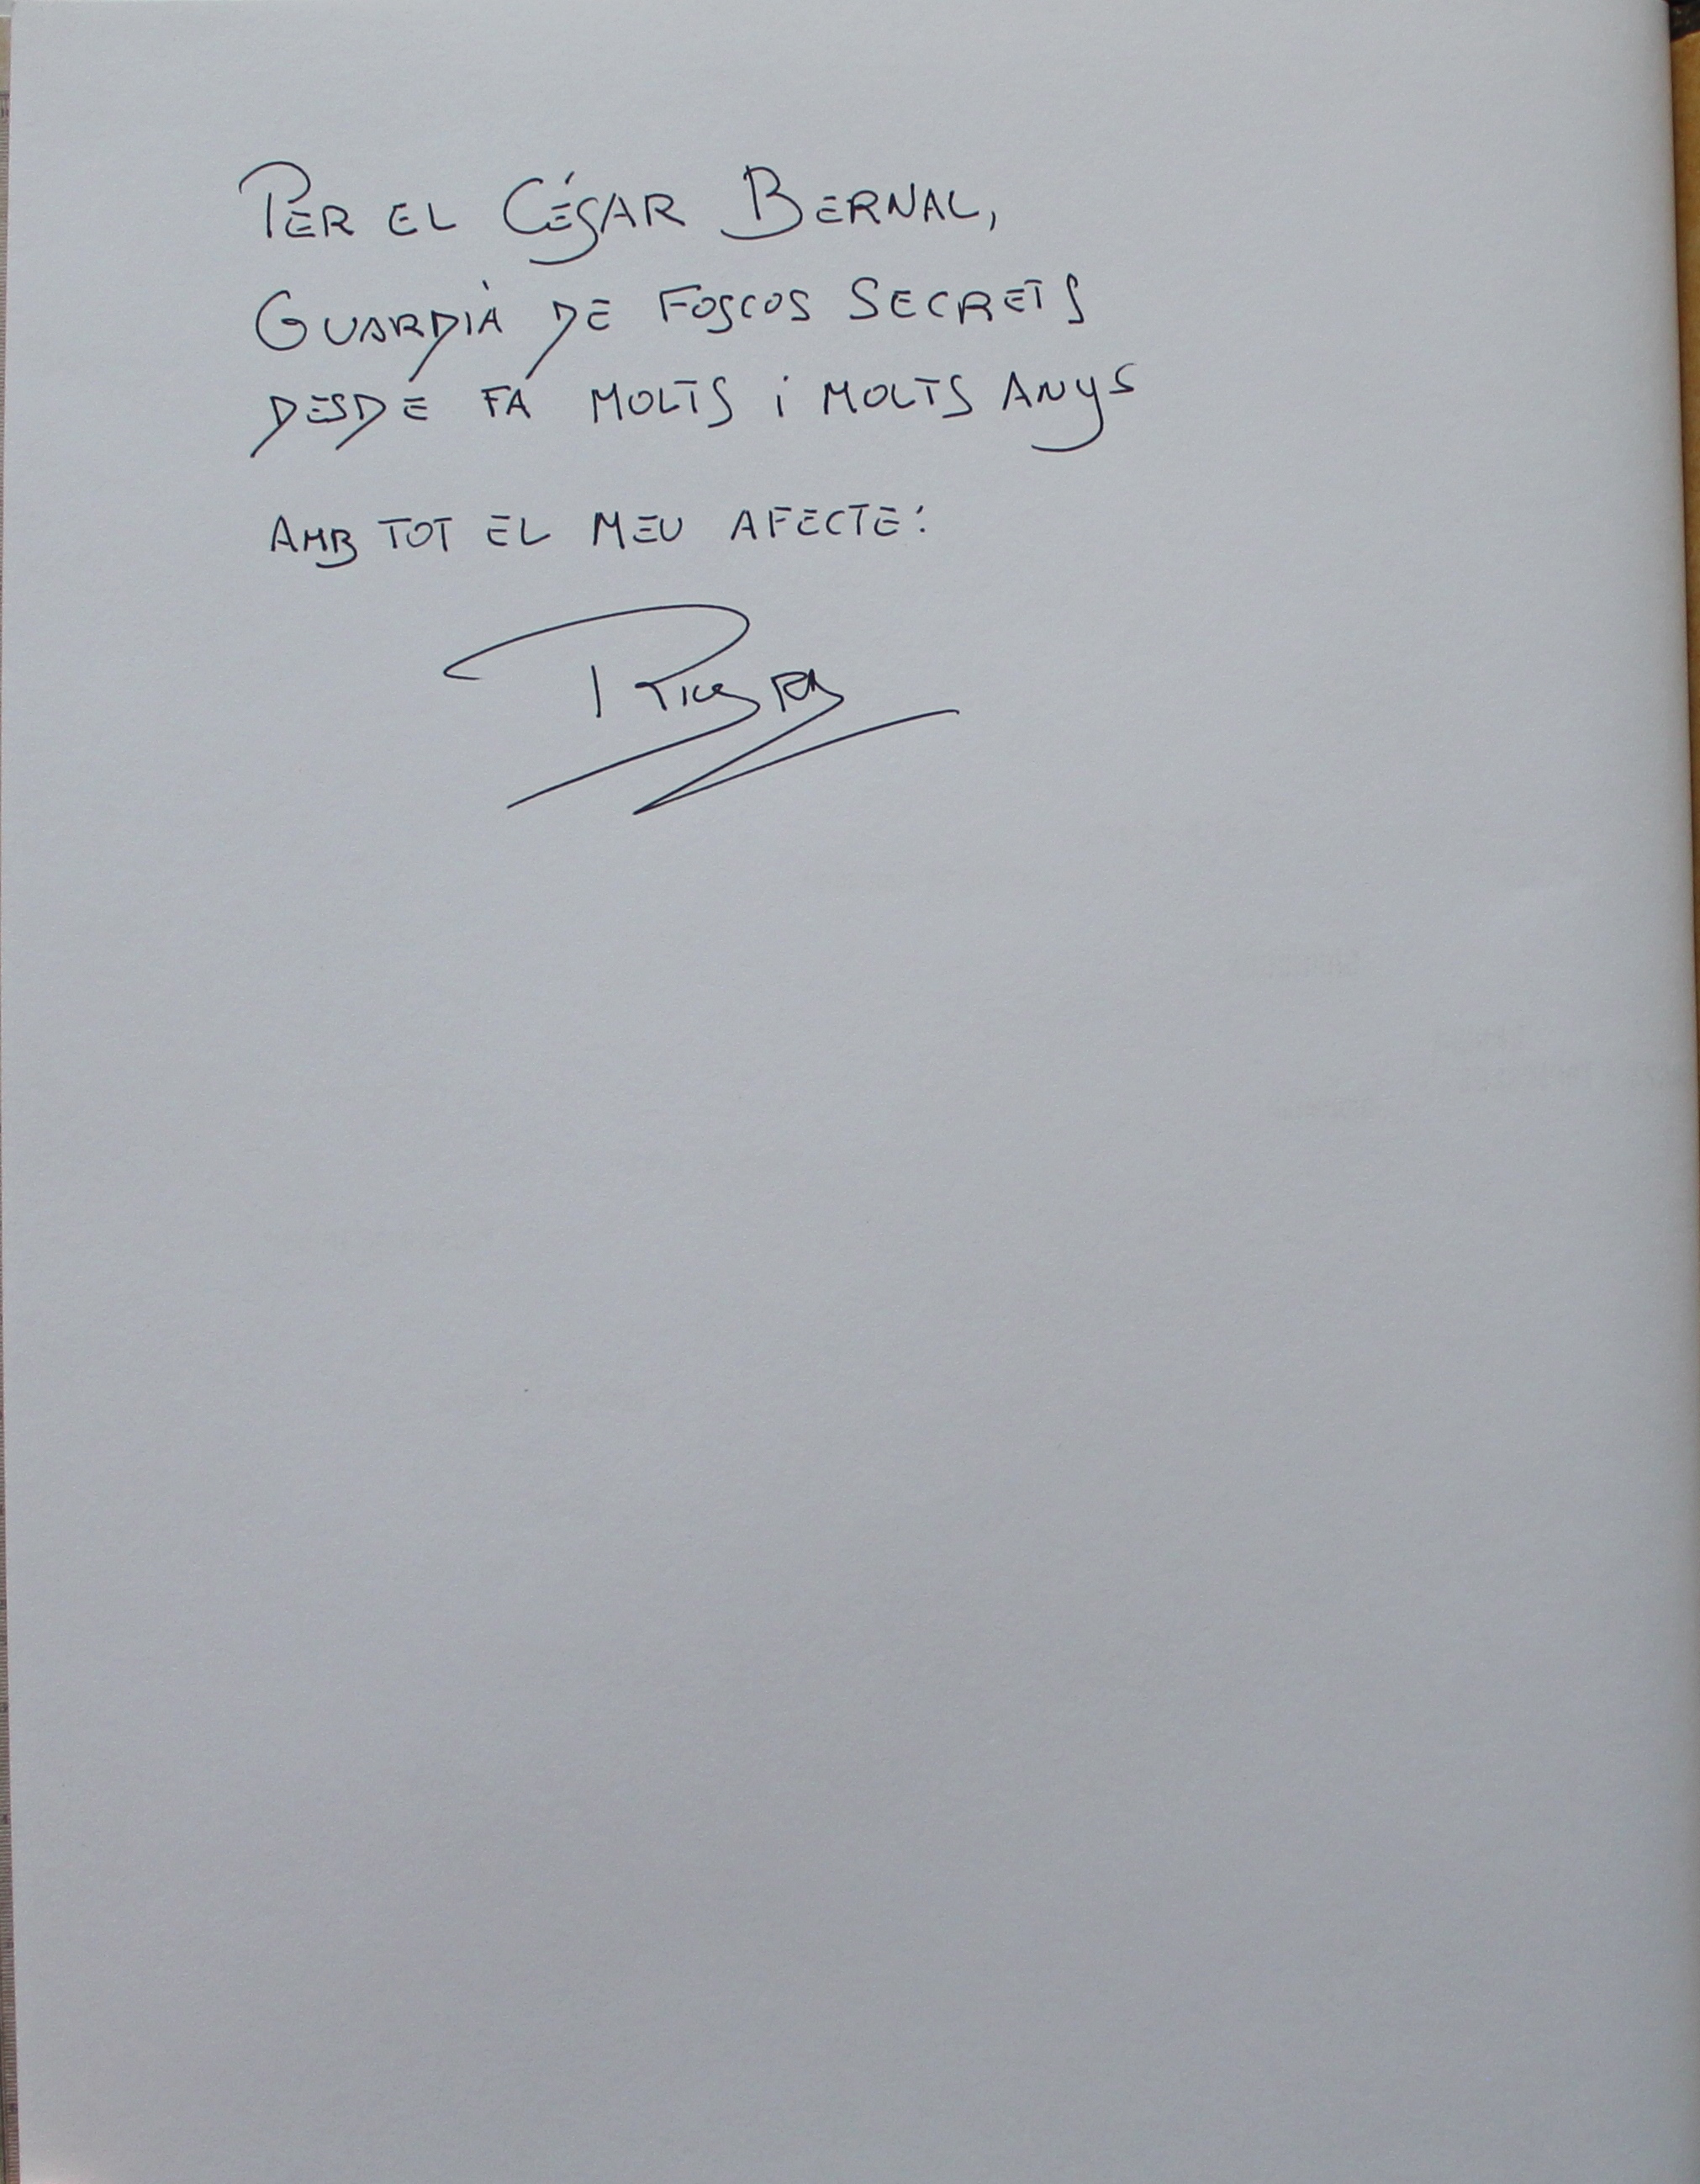 PER EL CÉSAR BERNAL,
GUARDIÀ DE FOSCOS SECRETS
DESDE FA MOLTS i MOLTS ANYS
AMB TOT EL MEU AFECTE: